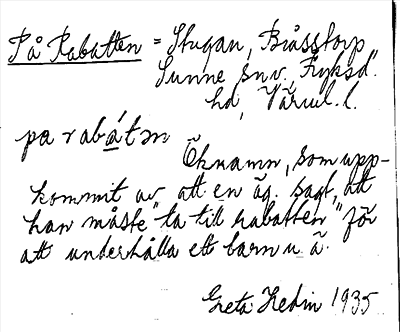 På Rabatten = Stugan, Blåsstorp
Sunne snv, Fryksd.
hd, Värml. l.
pa rabátɘn
Öknamn, som upp-
kommit av att en äg. sagt, att
han måste "ta till rabatten" för
att underhålla ett barn u. ä.
Greta Hedin 1935